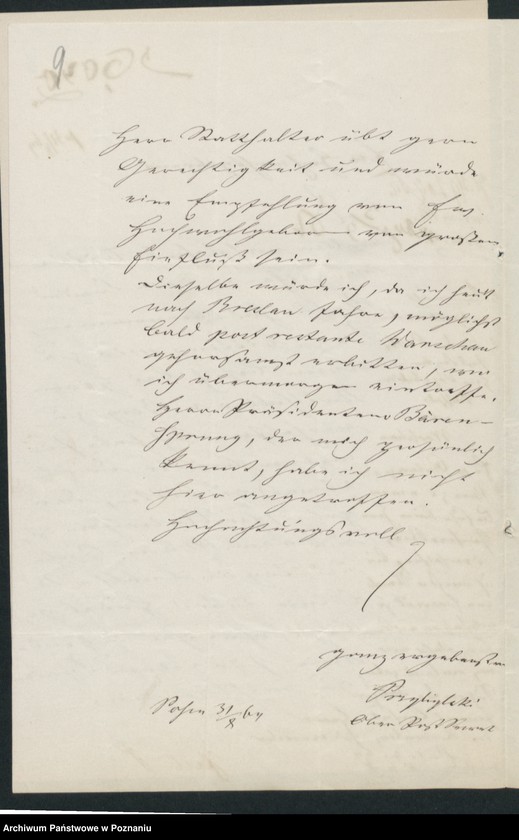 9
Herr Statthalter übt gern
Gerechtigkeit und würde
eine Empfehlung von Ew.
Hochwohlgeboren von großem
Einfluß sein.
Dieselbe würde ich, da ich heut
nach Breslau fahre, möglichst
bald post restante Warschau
gehorsamst erbitten, wo
ich übermorgen eintreffe.
Herrn Präsidenten v Bären-
sprung, der mich persönlich
kennt, habe ich nicht
hier angetroffen.
Hochachtungsvoll
ganz ergebenster
Ober Post Secret
Posen 31/8 64
Archiwum Państwowe w Poznaniu